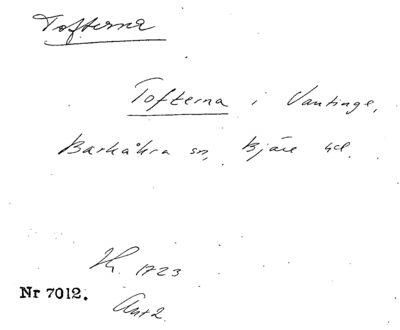 Tofterna
Tofterna i Vantinge,
Barkåkra sn, Bjäre hd.
1723
Nr 7012.